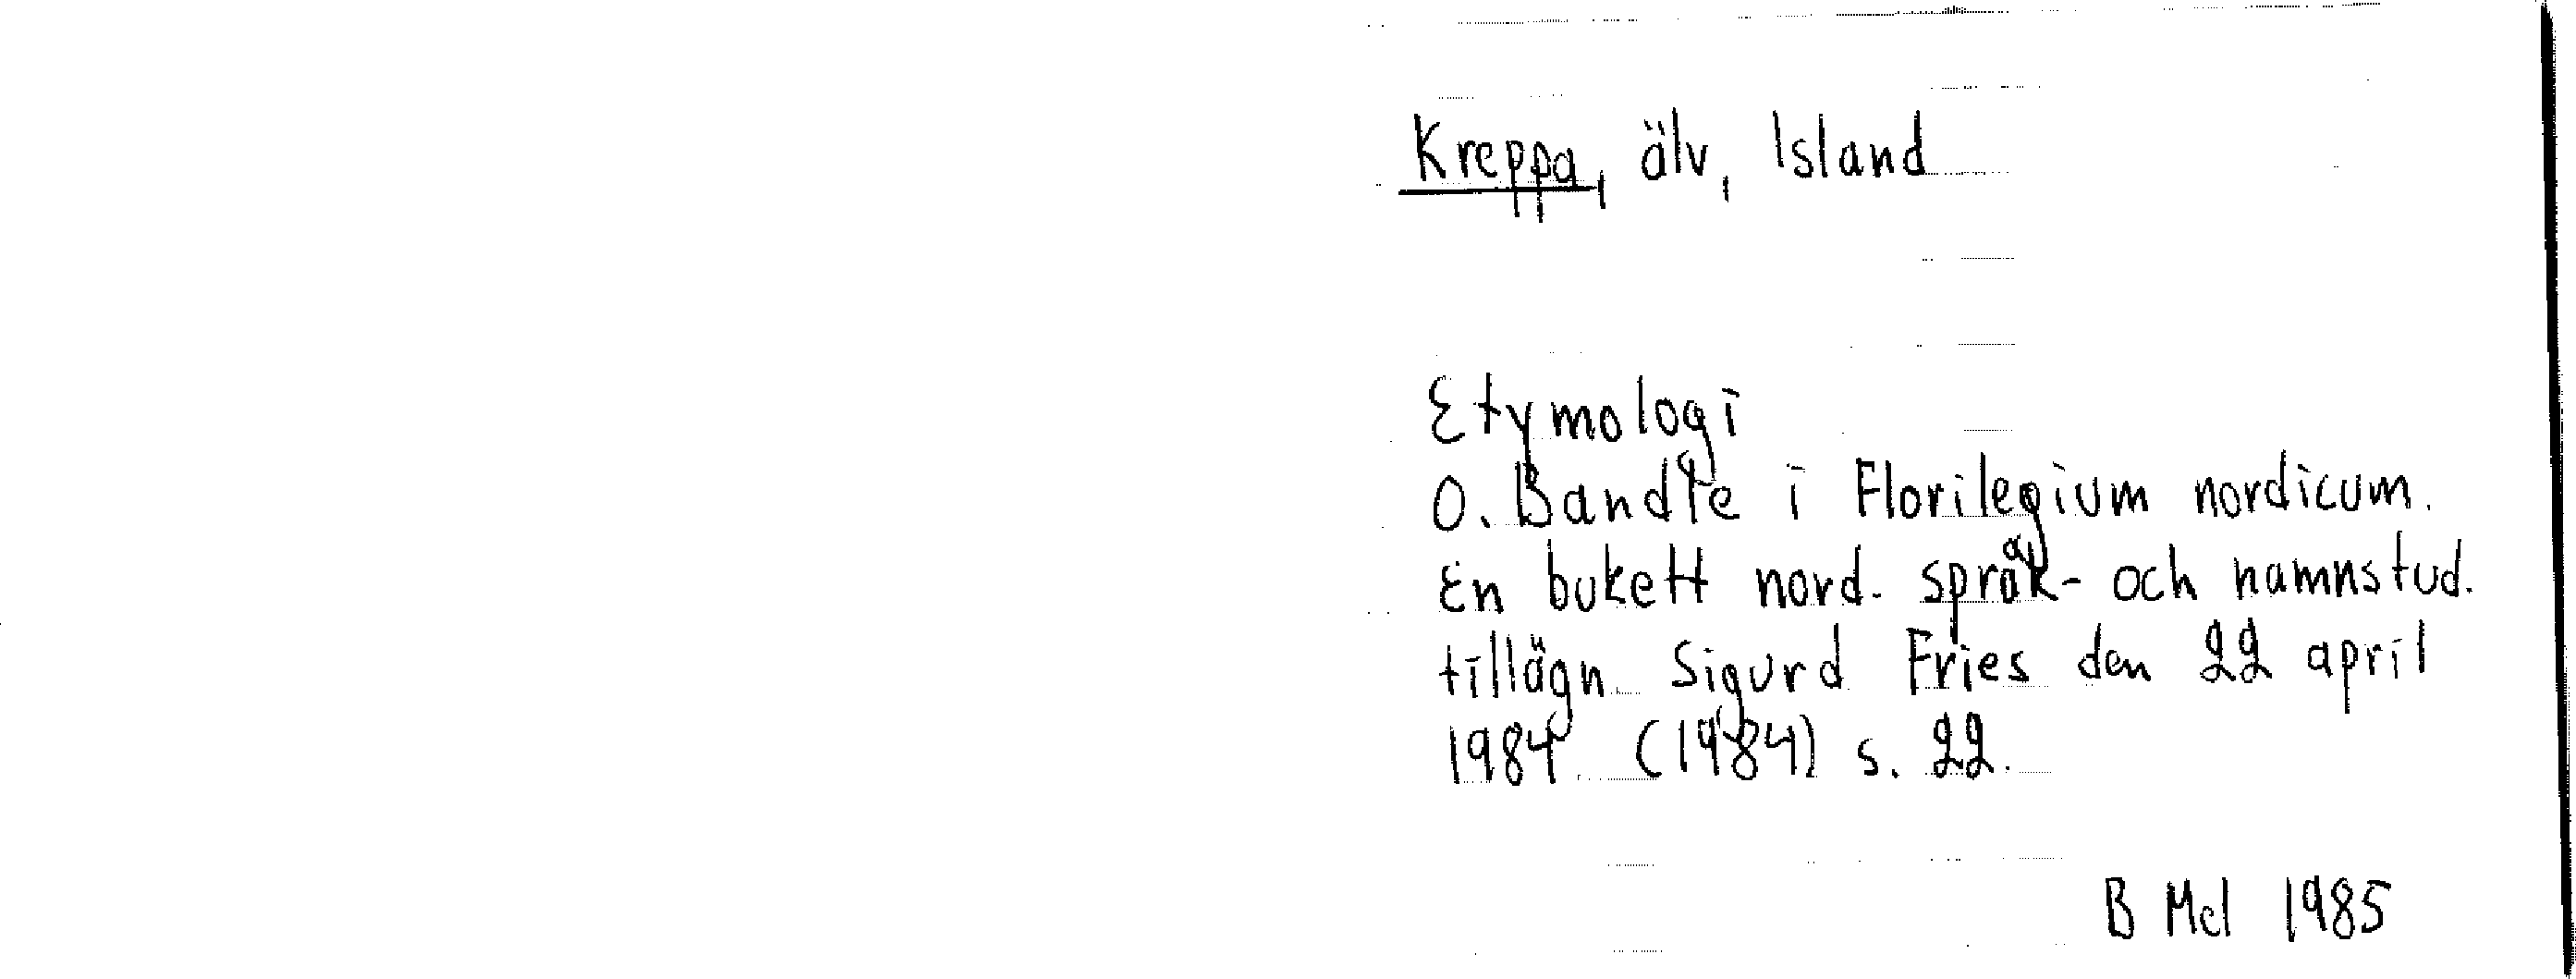 Kreppa, älv, Island
Etymologi
O. Bandle i Florilegium nordicum.
En bukett nord. språk- och namnstud.
tillägn. Sigurd Fries den 22 april
1984 (1984) s. 22.
B Mel 1985